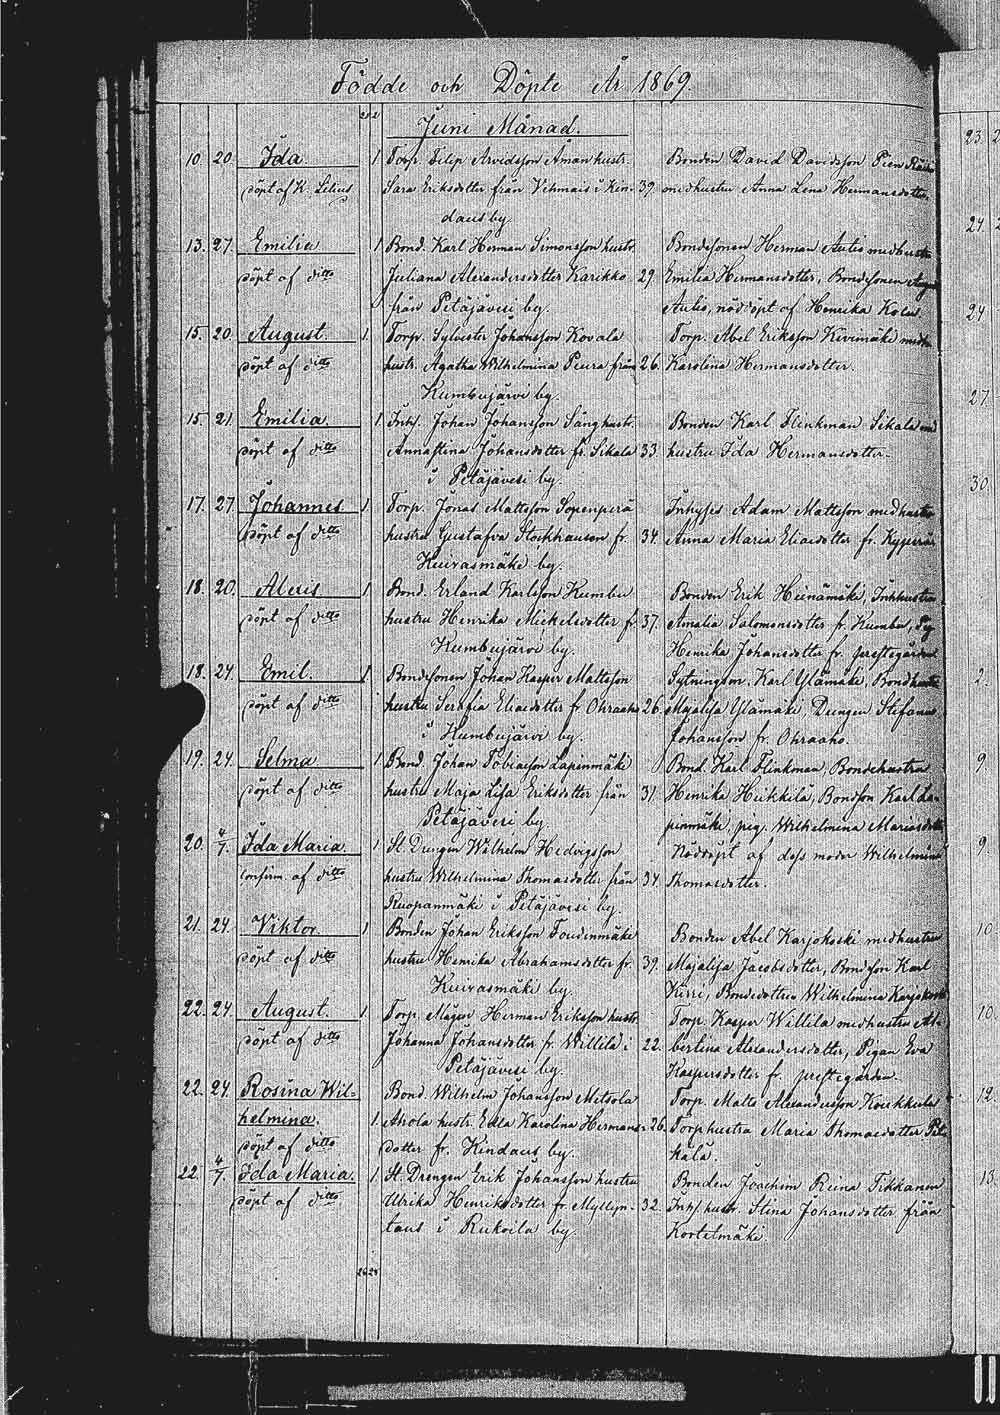 Födde och Döpte År 1869.
Juni Månad.
10. 20. Ida. 1 Torp. Filip Arvidsson Åman hustr. Bonden David Davidsson Pien
döpt af K. Lilius Sara Eriksdotter från Vehmais i Kin- 39. medhustru Anna Lena Hermansdotter.
daus by.
13. 27. Emilia 1 Bond. Karl Herman Simonsson hustr. Bondesonen Herman Autio medhustr.
döpt af ditto Juliana Alexandersdotter Karikko 29. Emilia Hermansdotter, Bondesonen
från Petäjävesi by. Autio, nöddöpt af Henrika
15. 20. August. 1 Torp. Sylvester Johansson Kovala Torp. Abel Eriksson Kivimäki
döpt af ditto hustr. Agatha Wilhelmina Peura från 26. Karolina Hermansdotter.
Kumbujärvi by.
15. 21. Emilia. 1 Inh. Johan Johansson Sång hustr. Bonden Karl Flinkman Sikala
döpt af ditto Annastina Johansdotter fr. Sikala 33. hustru Ida Hermansdotter.
i Petäjävesi by.
17. 27. Johannes 1 Torp. Jonas Mattsson Sopenperä Inhyses Adam Mattsson medhustr
döpt af ditto hustru Gustafva Stockhausen fr. 34. Anna Maria Eliaedotter fr.
Kuivasmäki by.
18. 20. Alexis. 1 Bond. Erland Karlsson Kumbu Bonden Erik Heinämäki, Inhhustru
döpt af ditto hustru Henrika Mickelsdotter fr. 37. Amalia Salomonsdotter fr. Kumbu,
Kumbujärvi by. Henrika Johansdotter fr. prestegården
18. 24. Emil. 1 Bondesonen Johan Kasper Mattsson Sytningsm. Karl Ylämäki, Bondhustr
döpt af ditto hustru Serafia Eliaedotter fr. Ohraaho 26. Majalisa Ylämäki, Drengen Stefanus
i Kumbujärvi by. Johansson fr. Ohraaho.
19. 24. Selma 1 Bond. Johan Tobiasson Lapinmäki Bond. Karl Flinkman, Bondehustru
döpt af ditto hustru Maja Lisa Eriksdotter från 31. Henrika Heikkilä, Bondson Karl La-
Petäjävesi by pinmäki, pig. Wilhelmina
20. 4/7. Ida Maria. 1 St. Drengen Wilhelm Hedvigsson Nöddöpt af dess moder Wilhelmina
confirm. af ditto hustru Wilhelmina Thomasdotter från 34. Thomasdotter.
Ruopanmäki i Petäjävesi by.
21. 24. Viktor. 1 Bonden Johan Eriksson Toudinmäki Bonden Abel Karjokoski medhustru
döpt af ditto hustru Henrika Abrahamsdotter fr. 39. Majalisa Jacobsdotter, Bondeson Karl
Kuivasmäki by. Kirri, Bondedottren Wilhelmina
22. 24. August. 1 Torp. Måg. Herman Eriksson hustr. Torp. Kasper Willila medhustru Al-
döpt af ditto Johanna Johansdotter fr. Willila i 22. bertina Alexandersdotter, Pigan Eva
Petäjävesi by. Kaspersdotter fr. prestegården.
22. 24. Rosina Wil- Bond. Wilhelm Johansson Metsola Torp. Matts Alexandersson Koukkula
helmina. 1 Ahola hustr. Edla Karolina Hermans- 26. Torphustru Maria Thomaedotter
döpt af ditto dotter fr. Kindaus by.
22. 4/7. Ida Maria. 1 St. Drengen Erik Johansson hustru Bonden Joachim Reina Tikkanen
döpt af ditto Ulrika Henriksdotter fr. Myllyn- 32. Inh. hustr. Stina Johansdotter från
taus i Rukoila by. Kortelmäki.